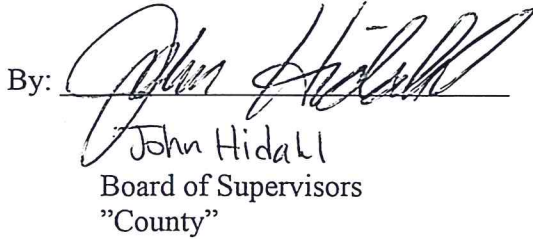 By: John Hidahl
John Hidahl
Board of Supervisors
"County"